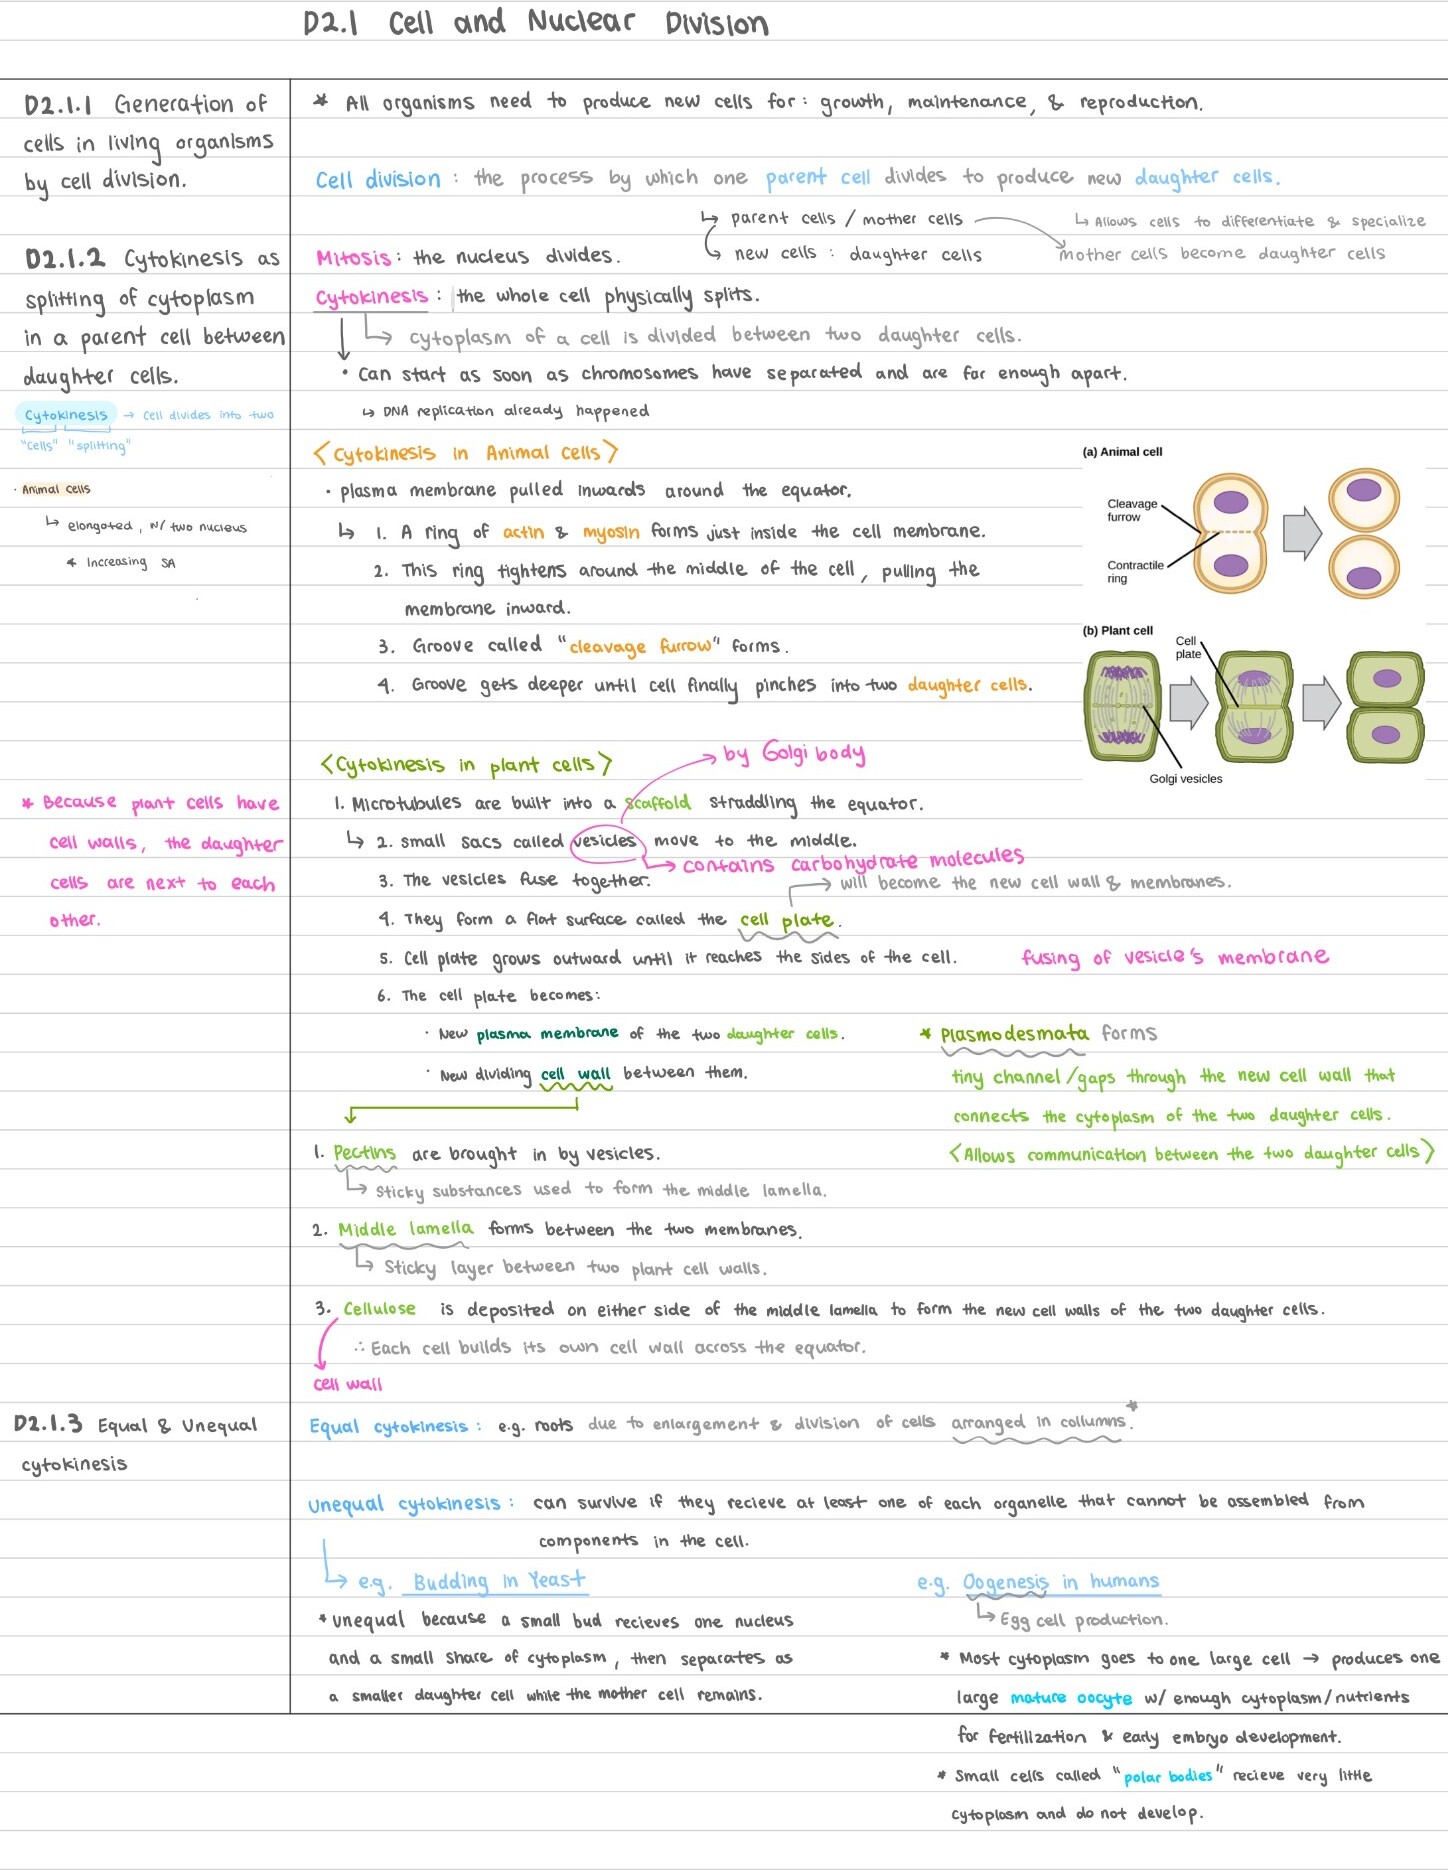 D2.1 Cell and Nuclear Division
D2.1.1 Generation of
cells in living organisms
by cell division.
* All organisms need to produce new cells for: growth, maintenance, & reproduction.
Cell division : the process by which one parent cell divides to produce new daughter cells.
↳ parent cells / mother cells
↳ Allows cells to differentiate & specialize
new cells : daughter cells
mother cells become daughter cells
D2.1.2 Cytokinesis as
splitting of cytoplasm
in a parent cell between
daughter cells.
Cytokinesis → Cell divides into two
"Cells" "splitting"
· Animal cells
↳ elongated, w/ two nucleus
* Increasing SA
Mitosis : the nucleus divides.
Cytokinesis : the whole cell physically splits.
↳ cytoplasm of a cell is divided between two daughter cells.
• Can start as soon as chromosomes have separated and are far enough apart.
↳ DNA replication already happened
<Cytokinesis in Animal cells>
• plasma membrane pulled inwards around the equator.
↳ 1. A ring of actin & myosin forms just inside the cell membrane.
2. This ring tightens around the middle of the cell, pulling the
membrane inward.
3. Groove called "cleavage furrow" forms.
4. Groove gets deeper until cell finally pinches into two daughter cells.
(a) Animal cell
Cleavage
furrow
Contractile
ring
(b) Plant cell
Cell
plate
Golgi vesicles
<Cytokinesis in plant cells>
→ by Golgi body
* Because plant cells have
cell walls, the daughter
cells are next to each
other.
1. Microtubules are built into a scaffold straddling the equator.
↳ 2. small sacs called vesicles move to the middle.
→ contains carbohydrate molecules
3. The vesicles fuse together.
→ will become the new cell wall & membranes.
4. They form a flat surface called the cell plate.
5. Cell plate grows outward until it reaches the sides of the cell.
fusing of vesicle's membrane
6. The cell plate becomes:
• New plasma membrane of the two daughter cells.
• New dividing cell wall between them.
* Plasmodesmata forms
tiny channel/gaps through the new cell wall that
connects the cytoplasm of the two daughter cells.
<Allows communication between the two daughter cells>
1. Pectins are brought in by vesicles.
↳ Sticky substances used to form the middle lamella.
2. Middle lamella forms between the two membranes.
↳ Sticky layer between two plant cell walls.
3. Cellulose is deposited on either side of the middle lamella to form the new cell walls of the two daughter cells.
∴ Each cell builds its own cell wall across the equator.
cell wall
D2.1.3 Equal & Unequal
cytokinesis
Equal cytokinesis : e.g. roots due to enlargement & division of cells arranged in collumns.*
Unequal cytokinesis : can survive if they recieve at least one of each organelle that cannot be assembled from
components in the cell.
↳ e.g. Budding in Yeast
* unequal because a small bud recieves one nucleus
and a small share of cytoplasm, then separates as
a smaller daughter cell while the mother cell remains.
e.g. Oogenesis in humans
↳ Egg cell production.
* Most cytoplasm goes to one large cell → produces one
large mature oocyte w/ enough cytoplasm/nutrients
for fertilization & early embryo development.
* Small cells called "polar bodies" recieve very little
cytoplasm and do not develop.